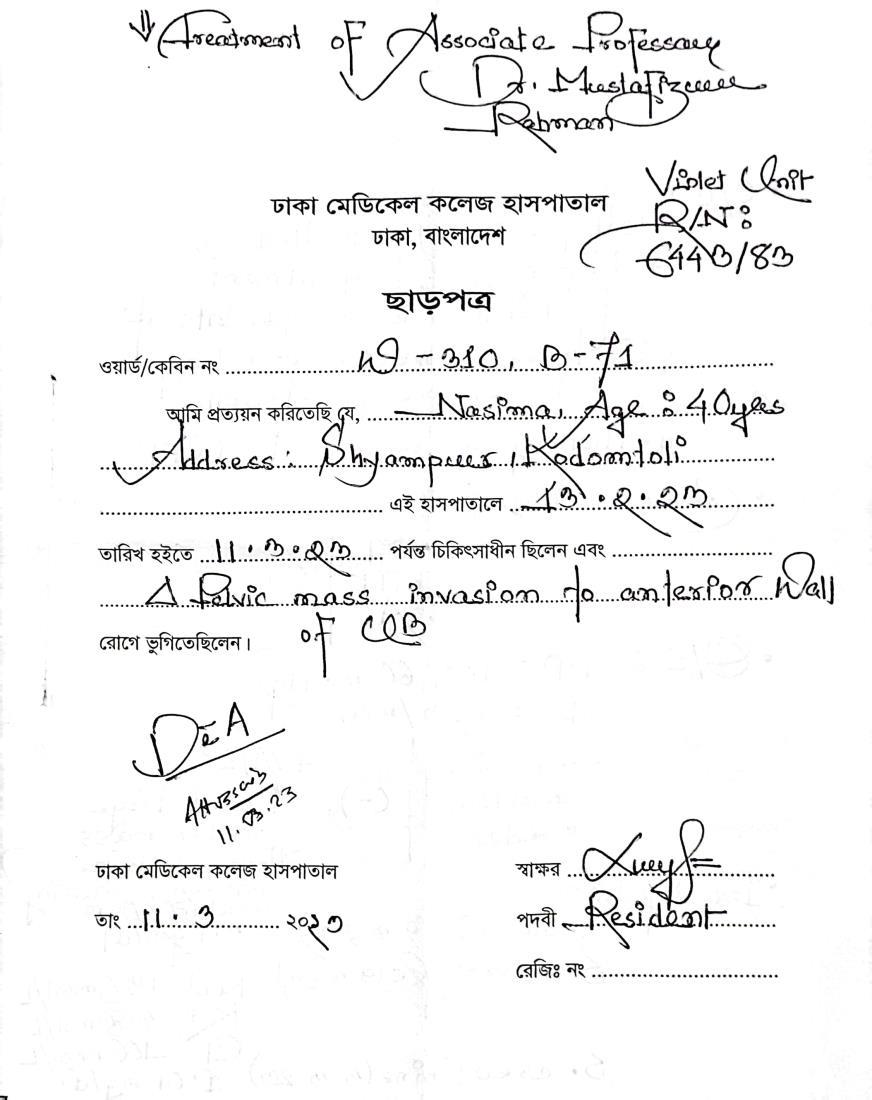 Treatment of Associate Professor
Dr. Mustafizur
Rahman
Violet Unit
R/N:
6443/83
ঢাকা মেডিকেল কলেজ হাসপাতাল
ঢাকা, বাংলাদেশ
ছাড়পত্র
ওয়ার্ড/কেবিন নং W-310, B-71
আমি প্রত্যয়ন করিতেছি যে, Nasima, Age : 40 yrs
Address: Shyampur, Kodomtoli
এই হাসপাতালে 13.2.23
তারিখ হইতে 11.3.23 পর্যন্ত চিকিৎসাধীন ছিলেন এবং
Δ Pelvic mass invasion to anterior Wall
রোগে ভুগিতেছিলেন। of UB
11.03.23
ঢাকা মেডিকেল কলেজ হাসপাতাল
স্বাক্ষর
তাং 11.3 ২০২৩
পদবী Resident
রেজিঃ নং